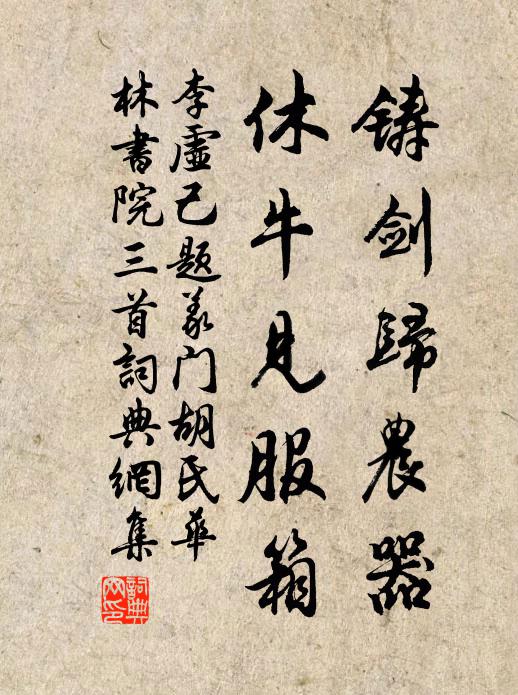 铸剑歸農器
休牛见服箱
李虛己题义门胡氏華
林書院三首詞典網集
詞典網印